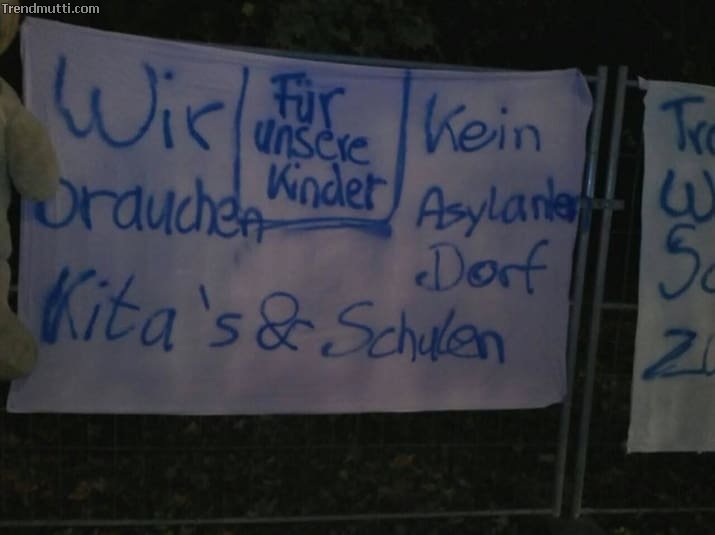 Trendmutti.com
Wir
brauchen
Kita's & Schulen
Für
unsere
Kinder
Kein
Asylanten
Dorf